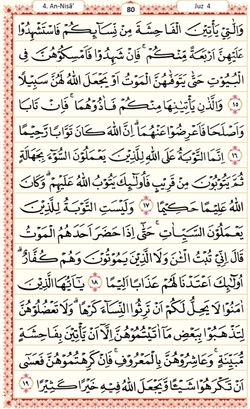 4. An-Nisā'
80
Juz 4
وَالّٰتِيْ يَأْتِيْنَ الْفَاحِشَةَ مِنْ نِّسَاۤىِٕكُمْ فَاسْتَشْهِدُوْا
عَلَيْهِنَّ اَرْبَعَةً مِّنْكُمْ ۚ فَاِنْ شَهِدُوْا فَاَمْسِكُوْهُنَّ فِى
الْبُيُوْتِ حَتّٰى يَتَوَفّٰهُنَّ الْمَوْتُ اَوْ يَجْعَلَ اللّٰهُ لَهُنَّ سَبِيْلًا
١٥ وَالَّذٰنِ يَأْتِيٰنِهَا مِنْكُمْ فَاٰذُوْهُمَا ۚ فَاِنْ تَابَا
وَاَصْلَحَا فَاَعْرِضُوْا عَنْهُمَا ۗ اِنَّ اللّٰهَ كَانَ تَوَّابًا رَّحِيْمًا
١٦ اِنَّمَا التَّوْبَةُ عَلَى اللّٰهِ لِلَّذِيْنَ يَعْمَلُوْنَ السُّوْۤءَ بِجَهَالَةٍ
ثُمَّ يَتُوْبُوْنَ مِنْ قَرِيْبٍ فَاُولٰۤىِٕكَ يَتُوْبُ اللّٰهُ عَلَيْهِمْ ۗ وَكَانَ
اللّٰهُ عَلِيْمًا حَكِيْمًا ١٧ وَلَيْسَتِ التَّوْبَةُ لِلَّذِيْنَ
يَعْمَلُوْنَ السَّيِّاٰتِ ۚ حَتّٰىٓ اِذَا حَضَرَ اَحَدَهُمُ الْمَوْتُ
قَالَ اِنِّيْ تُبْتُ الْـٰٔنَ وَلَا الَّذِيْنَ يَمُوْتُوْنَ وَهُمْ كُفَّارٌ ۗ
اُولٰۤىِٕكَ اَعْتَدْنَا لَهُمْ عَذَابًا اَلِيْمًا ١٨ يٰٓاَيُّهَا الَّذِيْنَ
اٰمَنُوْا لَا يَحِلُّ لَكُمْ اَنْ تَرِثُوا النِّسَاۤءَ كَرْهًا ۗ وَلَا تَعْضُلُوْهُنَّ
لِتَذْهَبُوْا بِبَعْضِ مَآ اٰتَيْتُمُوْهُنَّ اِلَّآ اَنْ يَّأْتِيْنَ بِفَاحِشَةٍ
مُّبَيِّنَةٍ ۚ وَعَاشِرُوْهُنَّ بِالْمَعْرُوْفِ ۚ فَاِنْ كَرِهْتُمُوْهُنَّ فَعَسٰٓى
اَنْ تَكْرَهُوْا شَيْـًٔا وَّيَجْعَلَ اللّٰهُ فِيْهِ خَيْرًا كَثِيْرًا ١٩